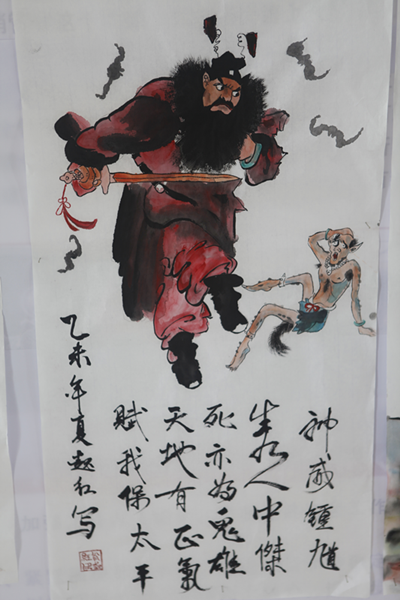 神威鍾馗
生为人中傑
死亦为鬼雄
天地有正氣
賦我保太平
乙未年夏红写